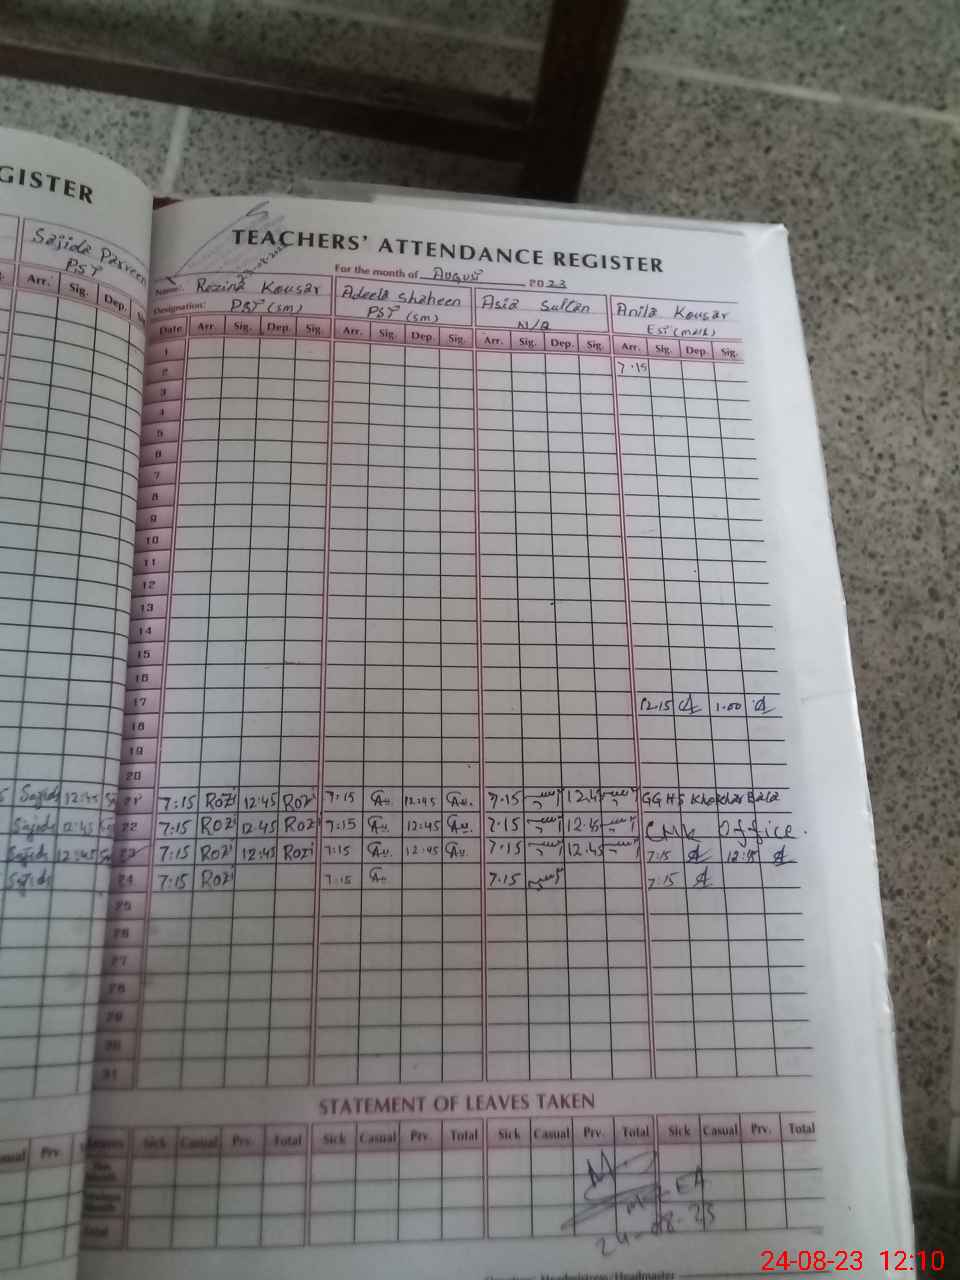 GISTER
Sajida Parveen
PST
Arr. Sig. Dep.
TEACHERS' ATTENDANCE REGISTER
For the month of August 2023
Name: Rozina Kousar Adeela Shaheen Asia Sultan Anila Kousar
Designation: PST (sm) PST (sm) N/Q
Date Arr. Sig. Dep. Sig. Arr. Sig. Dep. Sig. Arr. Sig. Dep. Sig. Arr. Sig. Dep. Sig.
1
2 7.15
3
4
5
6
7
8
9
10
11
12
13
14
15
16
17 12.15 1.00
18
19
20
Sajida 12:45 21 7:15 Rozi 12:45 Rozi 7:15 12:45 7.15 12.45 GGHS Khokhar Bala
Sajida 12:45 22 7:15 Rozi 12:45 Rozi 7:15 12:45 7.15 12.45 Office.
Sajida 12:45 23 7:15 Rozi 12:45 Rozi 7:15 12:45 7.15 12.45 7:15 12:45
Sajida 24 7:15 Rozi 7:15 7.15 7:15
25
26
27
28
29
30
31
STATEMENT OF LEAVES TAKEN
Prv. Leaves Sick Casual Prv. Total Sick Casual Prv. Total Sick Casual Prv. Total Sick Casual Prv. Total
Total
24-08-23
24-08-23 12:10